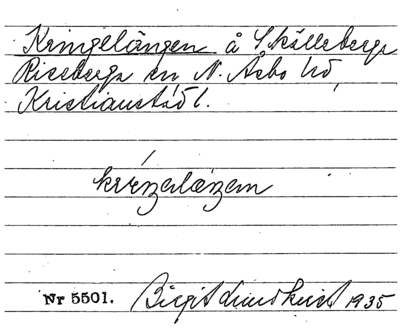 Kringelängen å Skälleberga
Riseberga sn N. Åsbo hd
Kristianstad l.
Nr 5501. Birgit Lundkvist 1935